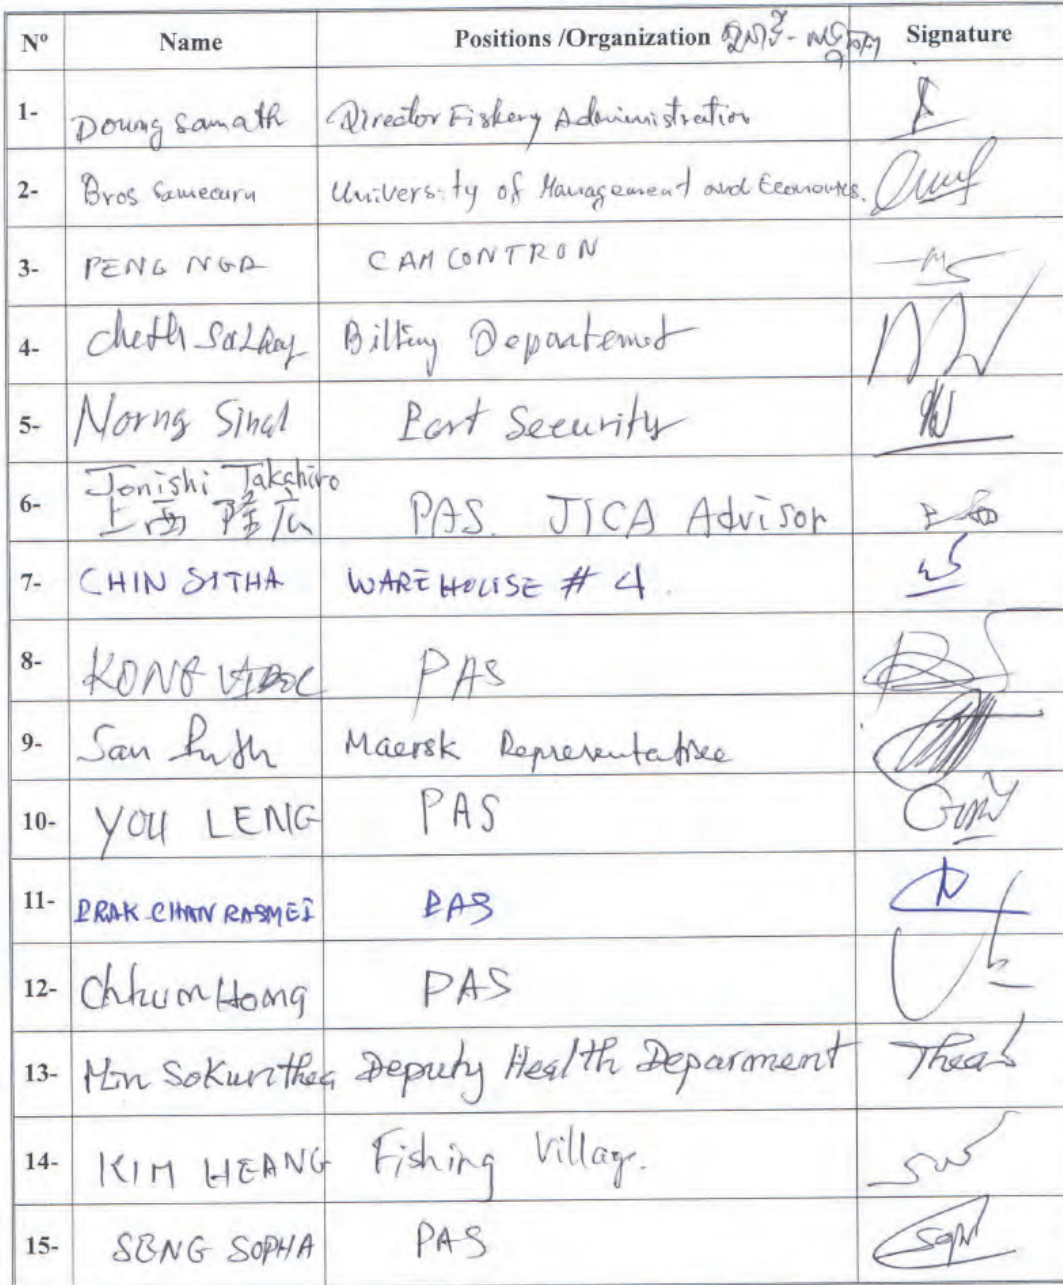 Nº Name Positions /Organization Signature
1- Doung Samath Director Fishery Administration
2- Bros University of Management and Economics.
3- PENG NGA CAMCONTRON
4- Cheth Billing Departement
5- Norng Sinal Port Security
6- Jonishi Takahiro
上西 隆広 PAS. JICA Advisor
7- CHIN SITHA WAREHOUSE # 4.
8- KONG PAS
9- San Maersk Representative
10- YOU LENG PAS
11- PRAK CHAN RASMEI PAS
12- Chhun Hong PAS
13- Min Sokunthea Deputy Health Deparment Thea
14- KIM HEANG Fishing Village.
15- SENG SOPHA PAS